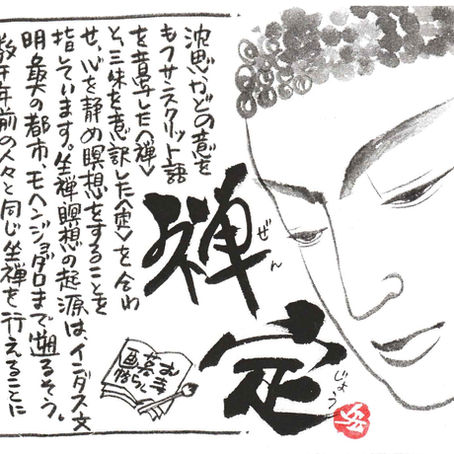 沈思などの意を
もつサンスクリット語
を音写した〈禅〉
と、三昧を意訳した〈定〉を合わ
せ、心を静め瞑想をすることを
指しています。坐禅瞑想の起源は、インダス文
明最大の都市、モヘンジョダロまで遡るそう。
数千年前の人々と同じ坐禅を行えることに
禅定
ぜん
じょう